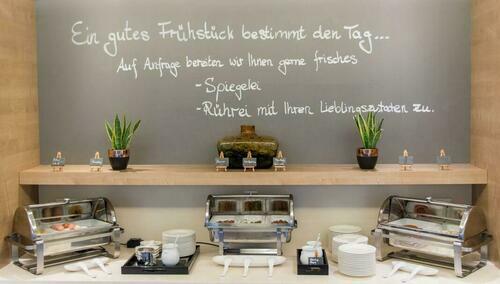 Ein gutes Frühstück bestimmt den Tag...
Auf Anfrage bereiten wir Ihnen gerne frisches
- Spiegelei
- Rührei mit Ihren Lieblingszutaten zu.